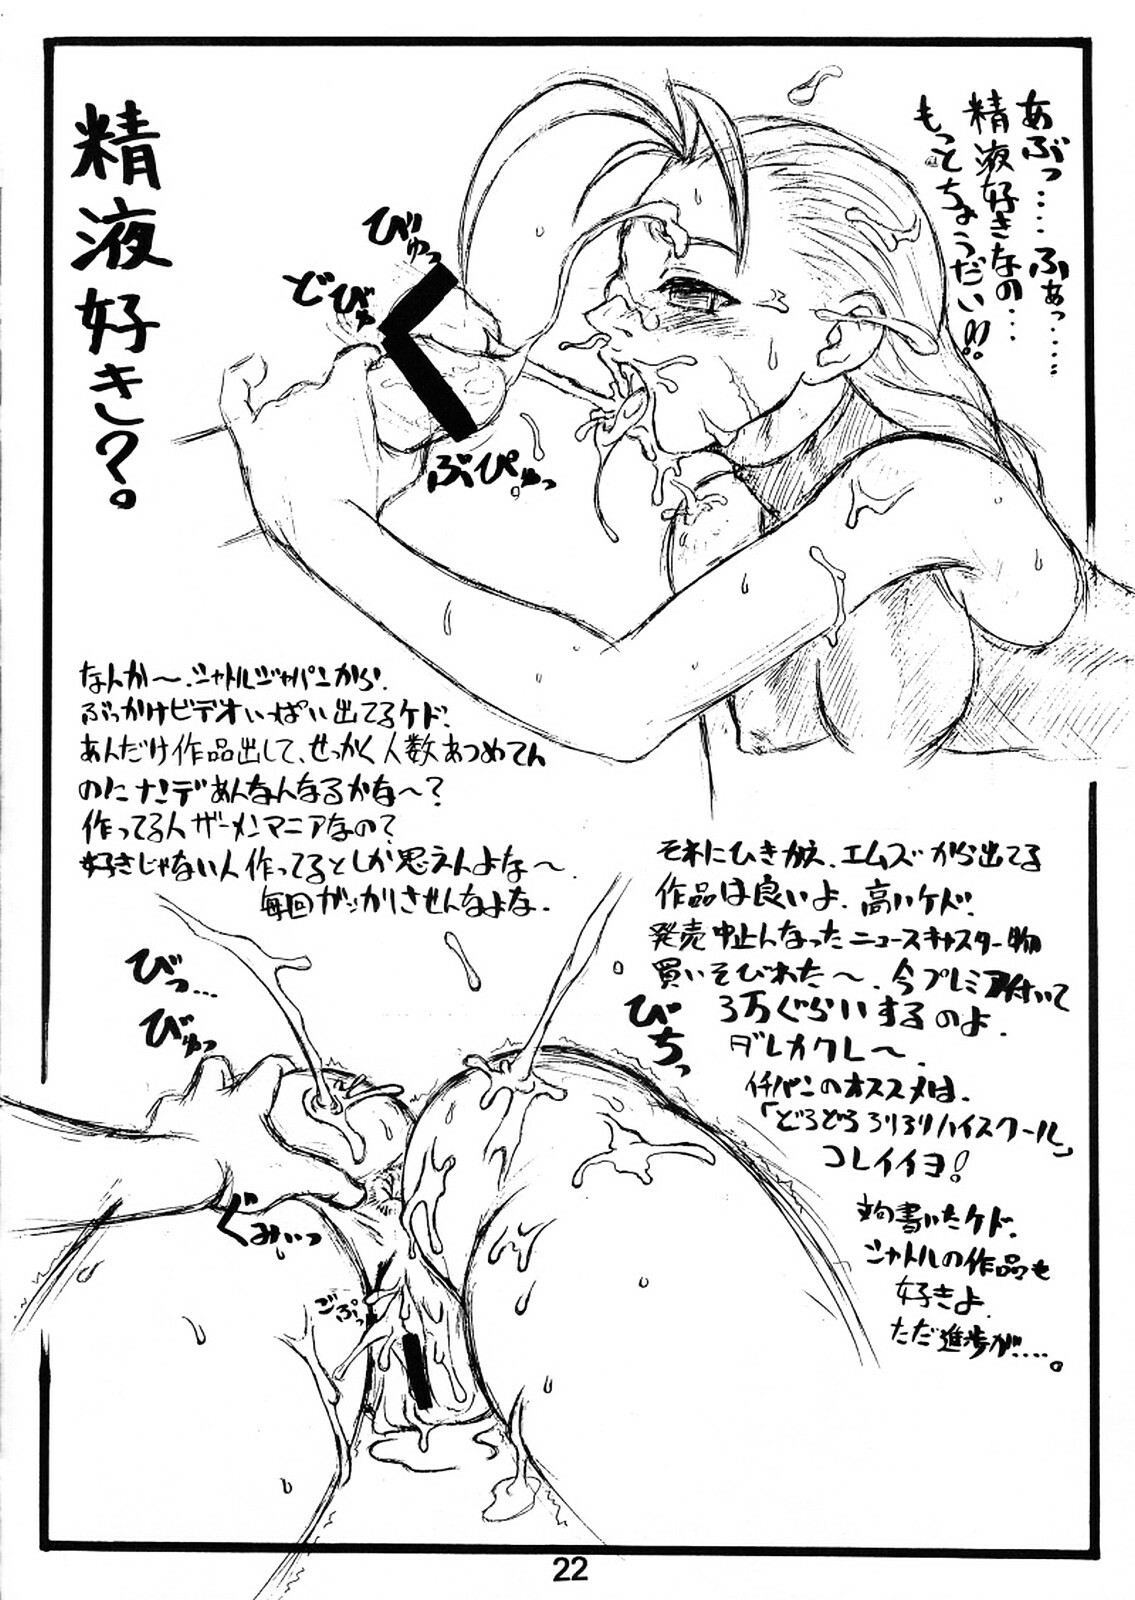 精液好き？。
あぶっ‥‥ふぁっ‥‥
精液好きなの‥‥
もっとちょうだい!!
びゅっ
どびゅ
ぶぴゅっ
なんか〜、シャトルジャパンから、
ぶっかけビデオいっぱい出てるケド、
あんだけ作品出して、せっかく人数あつめてん
のにナンデあんなんなるかな〜？
作ってる人ザーメンマニアなの？
好きじゃない人作ってるとしか思えんよな〜、
毎回ガッカリさせんなよな、
それにひきかえ、エムズから出てる
作品は良いよ、高いケド、
発売中止んなったニュースキャスター物
買いそびれた〜、今プレミア付いて
3万ぐらいするのよ、
ダレカクレ〜、
イチバンのオススメは、
「どろどろろりろりハイスクール」
コレイイヨ！
書いたケド、
シャトルの作品も
好きよ、
ただ進歩が‥‥。
びっ…
びゅっ
びちっ
ぐみぃっ
ごぷっ
22